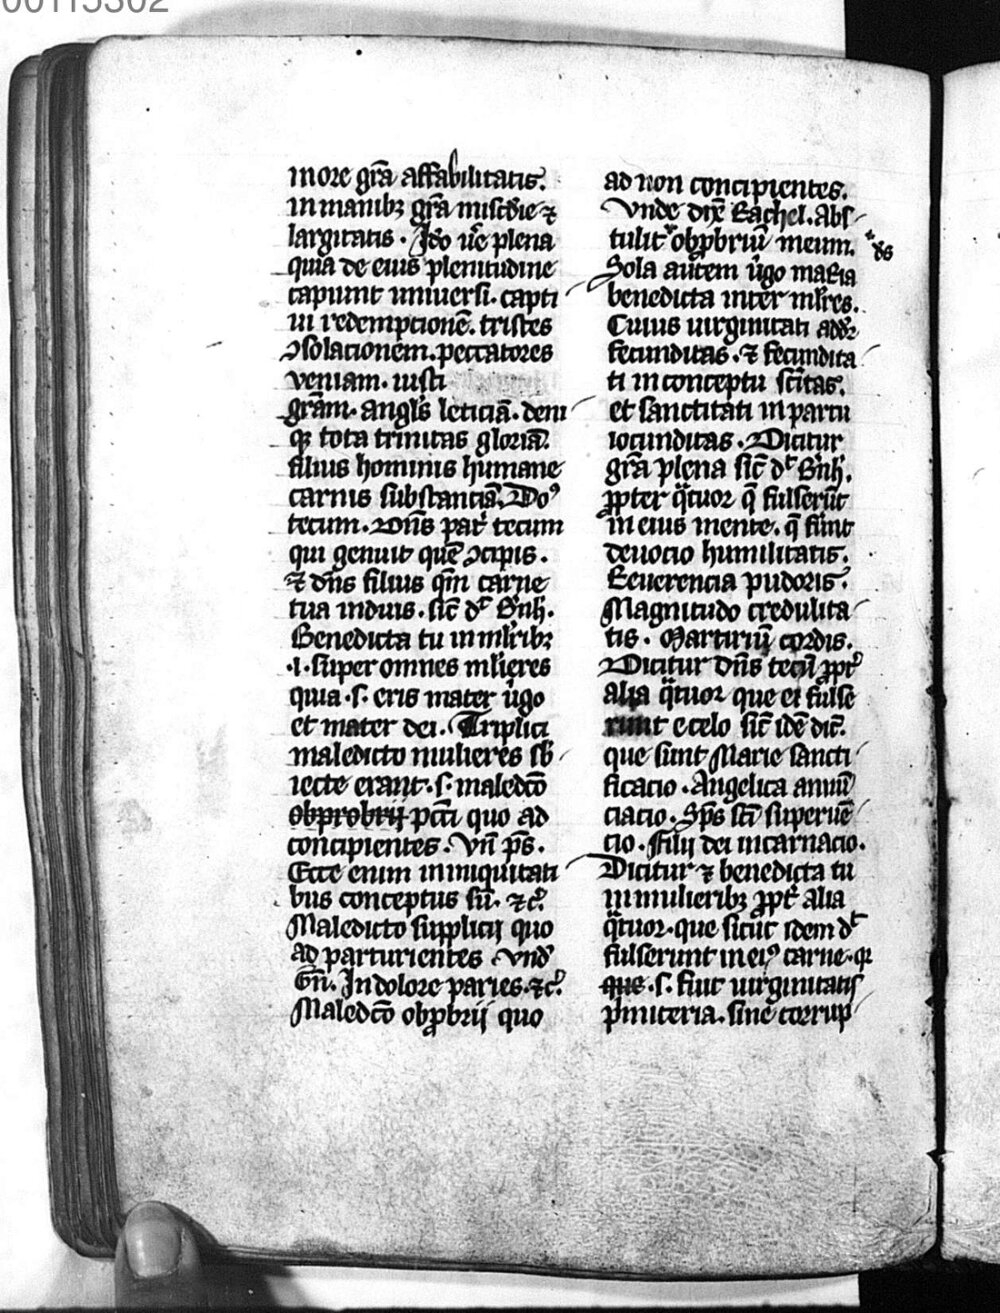 00115302
more gr̄a affabilitatis.
in manibꝫ gr̄a mis̄cdie ⁊
largitatis. Ido ūe plena
quia de eius plenitudine
capiunt uniuersi. capti
ui redempcionē. tristes
ↄsolacionem. peccatores
veniam. iusti
grām. angl̄s leticiā. deni
qꝫ tota trinitas gloriā.
filius hominis humane
carnis substanciā. Do⁹
tecum. Dn̄s pat̄ tecum
qui genuit quē ↄcipis.
⁊ dn̄s filius qm̄ carne
tua induis. sic̄ dᵗ B̄nh.
Benedicta tu in ml̄ribꝫ
.i. super omnes ml̄ieres
quia .s. eris mater ūgo
et mater dei. Triplici
maledicto mulieres sb̄
iecte erant. s. maledc̄o
obprobrij pcc̄i quo ad
concipientes. Vn̄ p̄s.
Ecce enim in iniquitati
bus conceptus sū. ⁊c̄.
Maledicto supplicij quo
ad parturientes. vnd̄
Gn̄. In dolore paries. ⁊c̄.
Maledc̄o obꝓbrij quo
ad non concipientes.
Vnde dix̄ Rachel. Abs
tulit obꝓbriū meum.
ds
Sola autem ūgo maria
benedicta inter ml̄res.
Cuius uirginitati addr̄
fecunditas. ⁊ fecundita
ti in conceptu sc̄itas.
et sanctitati in partu
iocunditas. Dicitur
gr̄a plena sic̄ dᵗ B̄nh.
ꝓpter q̄tuor q̄ fulserūt
in eius mente. q̄ sunt
deuocio humilitatis.
Reuerencia pudoris.
Magnitudo credulita
tis. Martiriū cordis.
Dicitur dn̄s tecū ꝓpt̄
alia q̄tuor que ei fulse
runt e celo sic̄ idē dic̄.
que sunt Marie sancti
ficacio. Angelica annū
ciacio. Sp̄s sc̄i superuē
cio. Filij dei incarnacio.
Dicitur ⁊ benedicta tu
in mulieribꝫ ꝓpt̄ alia
q̄tuor. que sicut idem dᵗ
fulserunt in ei⁹ carne. q̄
que .s. fiut uirginitatis
p̄miceria. sine corrup